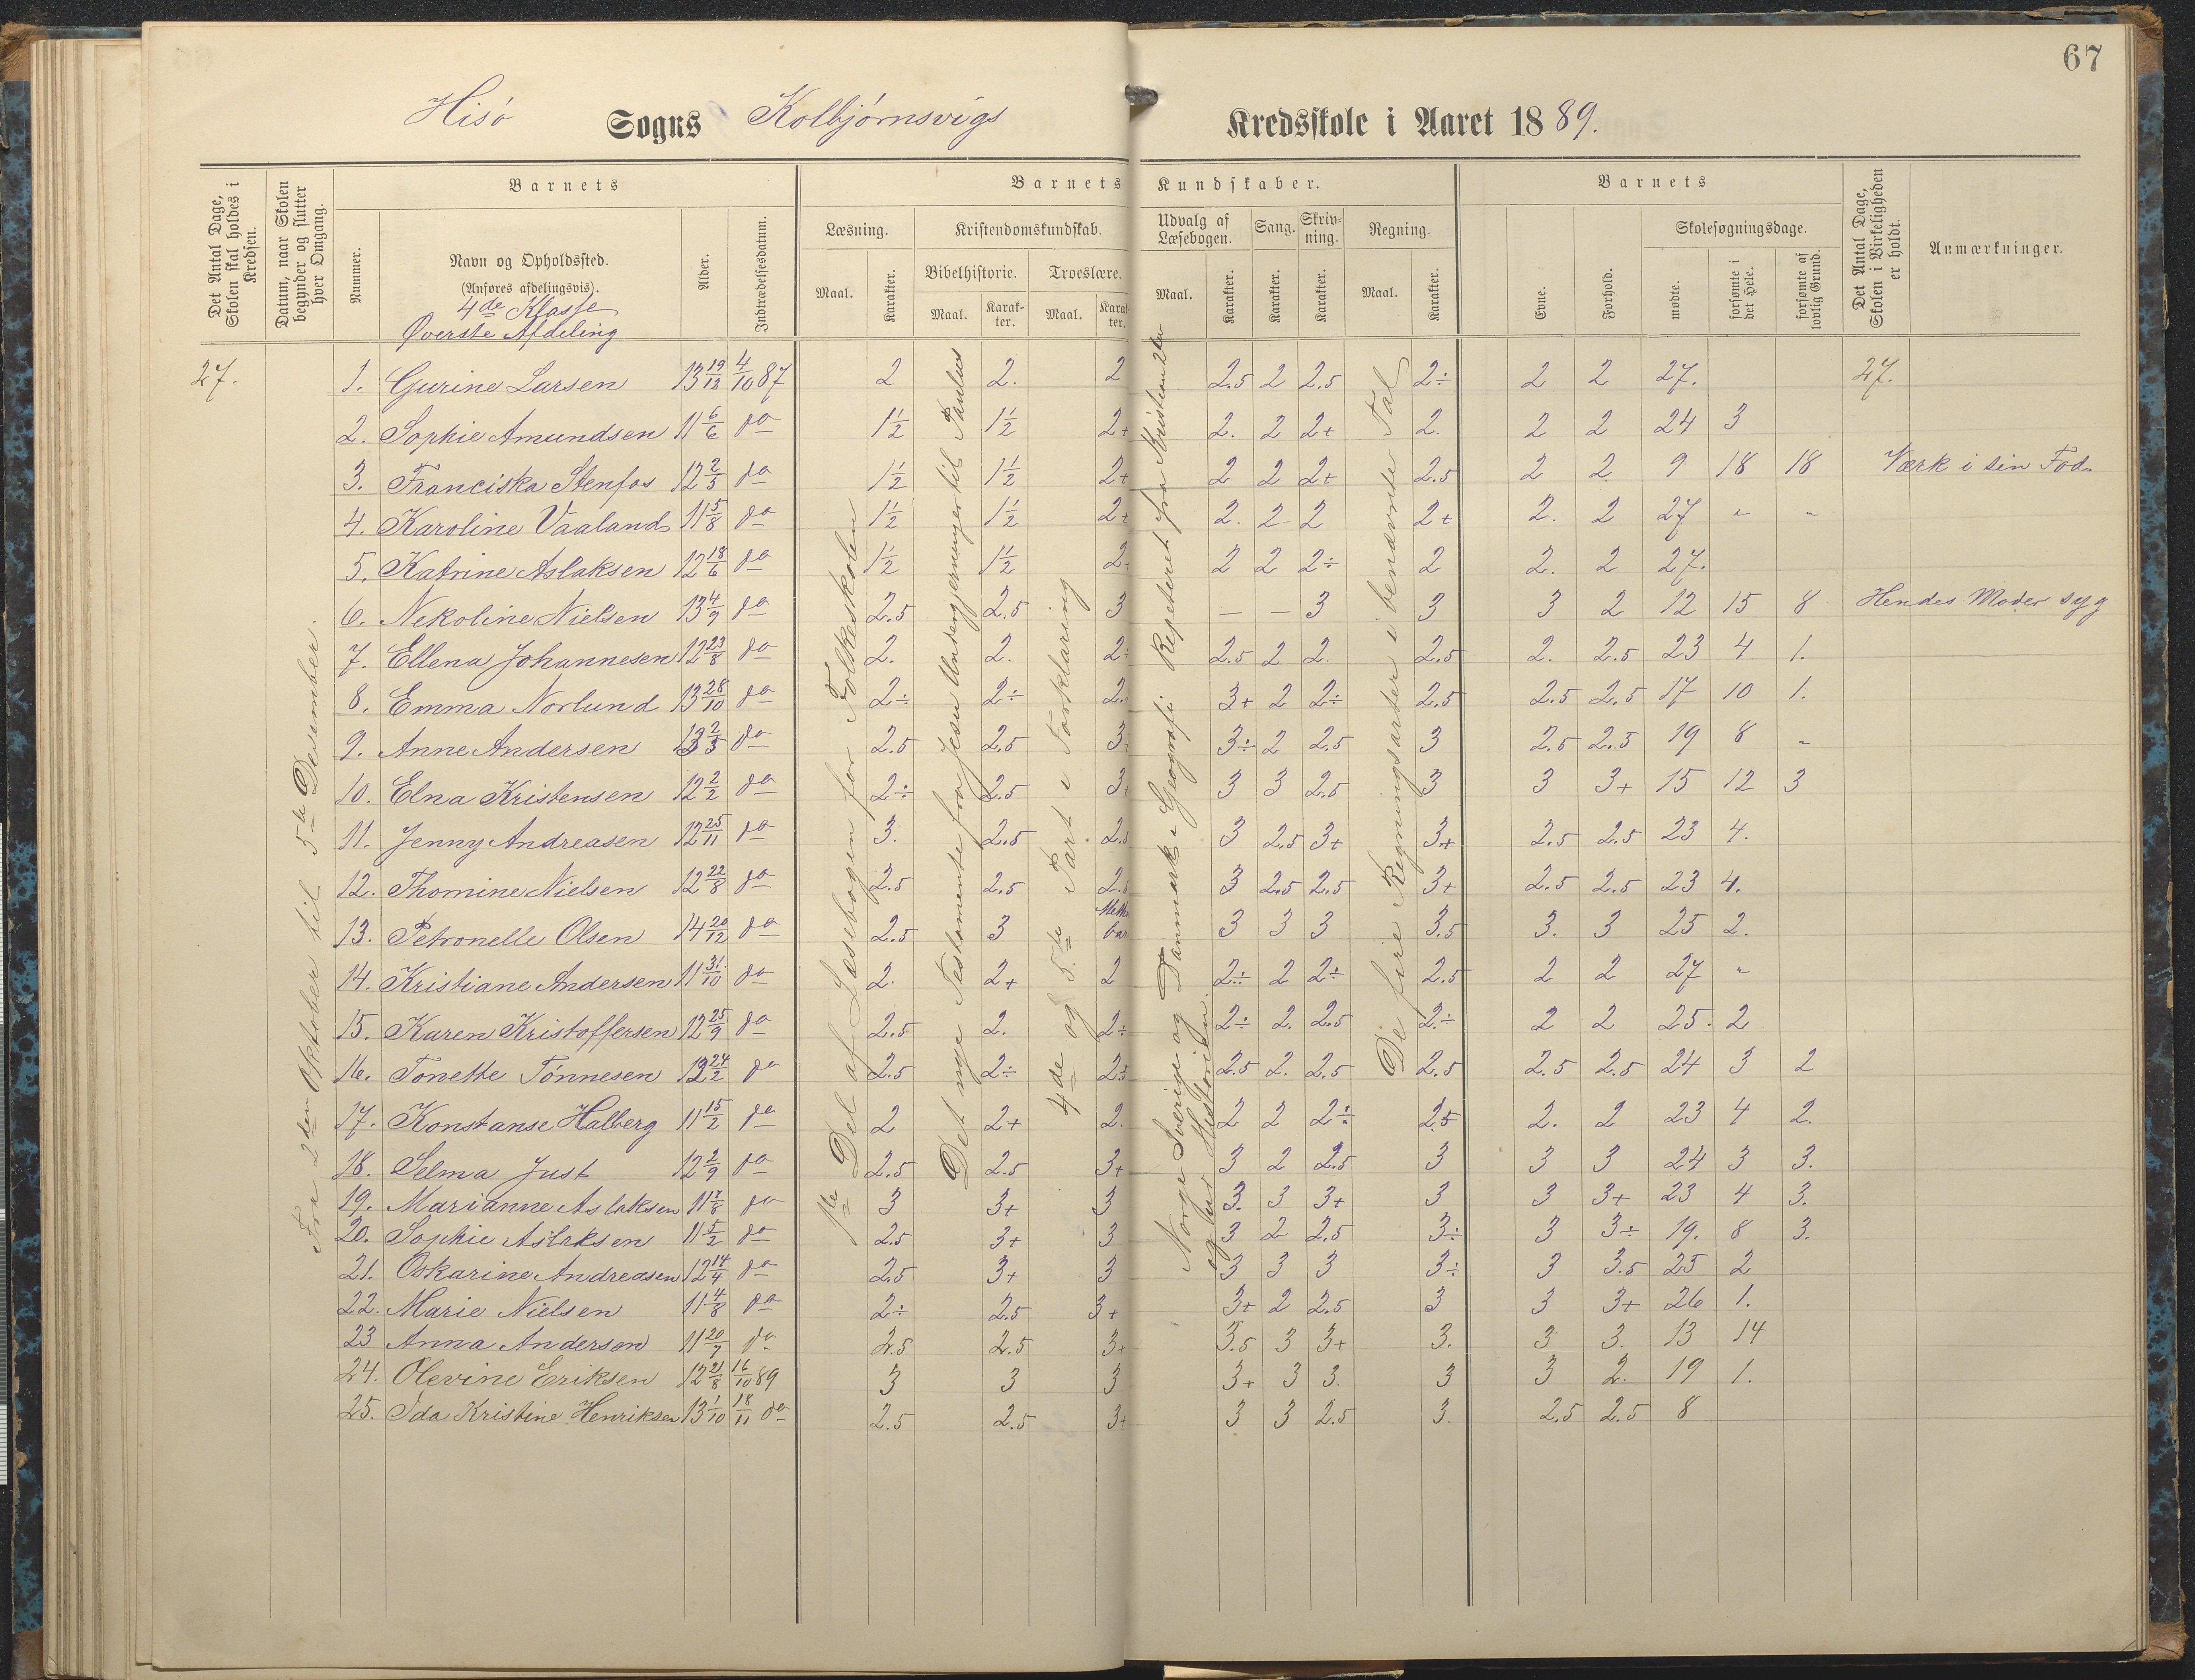 67
Hisø Sogns Kolbjørnsvigs Kredsskole i Aaret 1889.
Det Antal Dage, Skolen skal holdes i Kredsen.
Datum, naar Skolen begynder og slutter hver Omgang.
Barnets
Nummer.
Navn og Opholdssted.
(Anføres afdelingsvis).
4de Klasse
Øverste Afdeling
Alder.
Indtrædelsesdatum.
Barnets Kundskaber.
Læsning.
Maal.
Karakter.
Kristendomskundskab.
Bibelhistorie.
Maal.
Karakter.
Troeslære.
Maal.
Karakter.
Udvalg af Læsebogen.
Maal.
Karakter.
Sang.
Karakter.
Skrivning.
Karakter.
Regning.
Maal.
Karakter.
Barnets
Evne.
Forhold.
Skolesøgningsdage.
mødte.
forsømte i det Hele.
forsømte af lovlig Grund.
Det Antal Dage, Skolen i Virkeligheden er holdt.
Anmærkninger.
27.
Fra 2den Oktober til 5te Desember.
1ste Del af Læsebogen for Folkeskolen
Det nye Testamente fra Jesu Undergjerninger til Paulus
4de og 5te Part i Forklaring
Norge Sverige og Danmark i Geografi. Repeteret fra Kristian 2den
og ud Historien.
De fire Regningsarter i benævnte Tal
1. Gurine Larsen 13 19/12 4/10 87 2 2. 2 2.5 2 2.5 2÷ 2 2 27. 27.
2. Sophie Amundsen 11 6/6 do 1½ 1½ 2+ 2. 2 2+ 2. 2 2 24 3
3. Franciska Stenfos 12 2/5 do 1½ 1½ 2+ 2 2 2+ 2.5 2 2. 9 18 18 Værk i sin Fod
4. Karoline Vaaland 11 5/8 do 1½ 1½ 2+ 2. 2 2 2+ 2. 2 27 " "
5. Katrine Aslaksen 12 18/6 do 1½ 1½ 2 2 2 2÷ 2 2. 2 27.
6. Nekoline Nielsen 13 4/9 do 2.5 2.5 3 — — 3 3 3 2 12 15 8 Hendes Moder syg
7. Ellena Johannesen 12 23/8 do 2. 2. 2÷ 2.5 2 2. 2.5 2. 2.5 23 4 1.
8. Emma Norlund 13 28/10 do 2÷ 2÷ 2. 3+ 2 2÷ 2.5 2.5 2.5 17 10 1.
9. Anne Andersen 13 2/5 do 2.5 2.5 3 3÷ 2 2.5 3 2.5 2.5 19 8 "
10. Elna Kristensen 12 2/2 do 2÷ 2.5 3 3 3 2.5 3 3 3+ 15 12 3
11. Jenny Andreasen 12 25/11 do 3. 2.5 2.5 3 2.5 3+ 3+ 2.5 2.5 23 4.
12. Thomine Nielsen 12 22/8 do 2.5 2.5 2. 3 2.5 2.5 3+ 2.5 2.5 23 4.
13. Petronelle Olsen 14 20/12 do 2.5 3 3 3 3 3.5 3. 3 25 2.
14. Kristiane Andersen 11 31/10 do 2. 2+ 2 2÷ 2 2÷ 2.5 2 2 27 "
15. Karen Kristoffersen 12 25/9 do 2.5 2. 2÷ 2÷ 2. 2.5 2÷ 2 2 25. 2
16. Tonette Tønnesen 13 24/2 do 2.5 2÷ 2.5 2.5 2. 2.5 2.5 2.5 2.5 24 3 2
17. Konstanse Halberg 11 15/2 do 2 2+ 2. 2 2 2÷ 2.5 2. 2 23 4 2.
18. Selma Just 12 2/9 do 2.5 2.5 3+ 3 2 2.5 3 3 3 24 3 3.
19. Marianne Aslaksen 11 7/8 do 3 3+ 3 3. 3 3+ 3 3 3+ 23 4 3.
20. Sophie Aslaksen 11 5/2 do 2.5 3+ 3 3 2 2.5 3÷ 3 3÷ 19. 8 3.
21. Oskarine Andreasen 12 14/4 do 2.5 3+ 3 3 3 3 3÷ 3 3.5 25 2
22. Marie Nielsen 11 4/8 do 2÷ 2.5 3+ 3+ 2 2.5 3 3 3+ 26 1.
23 Anna Anderson 11 20/7 do 2.5 2.5 3+ 3.5 3 3+ 3. 3 3. 13 14
24. Olevine Eriksen 12 21/8 16/10 89 3 3 3 3+ 3 3. 3 3 2. 19 1.
25. Ida Kristine Henriksen 13 1/10 18/11 do 2.5 2.5 3+ 3 3 2.5 3. 2.5 2.5 8